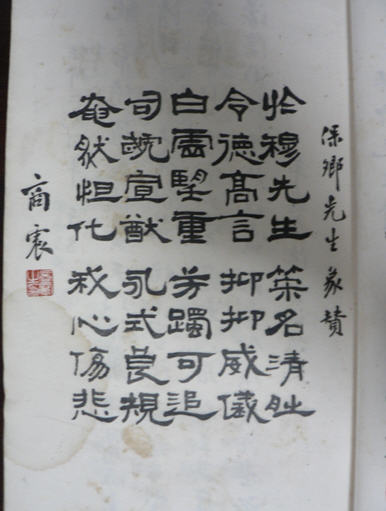 保鄉先生象贊
於穆先生 策名清旹
令德高言 抑抑威儀
白 堅重 芳躅可追
旬 宣猷 永式良規
奄然怛化 我心傷悲
商震